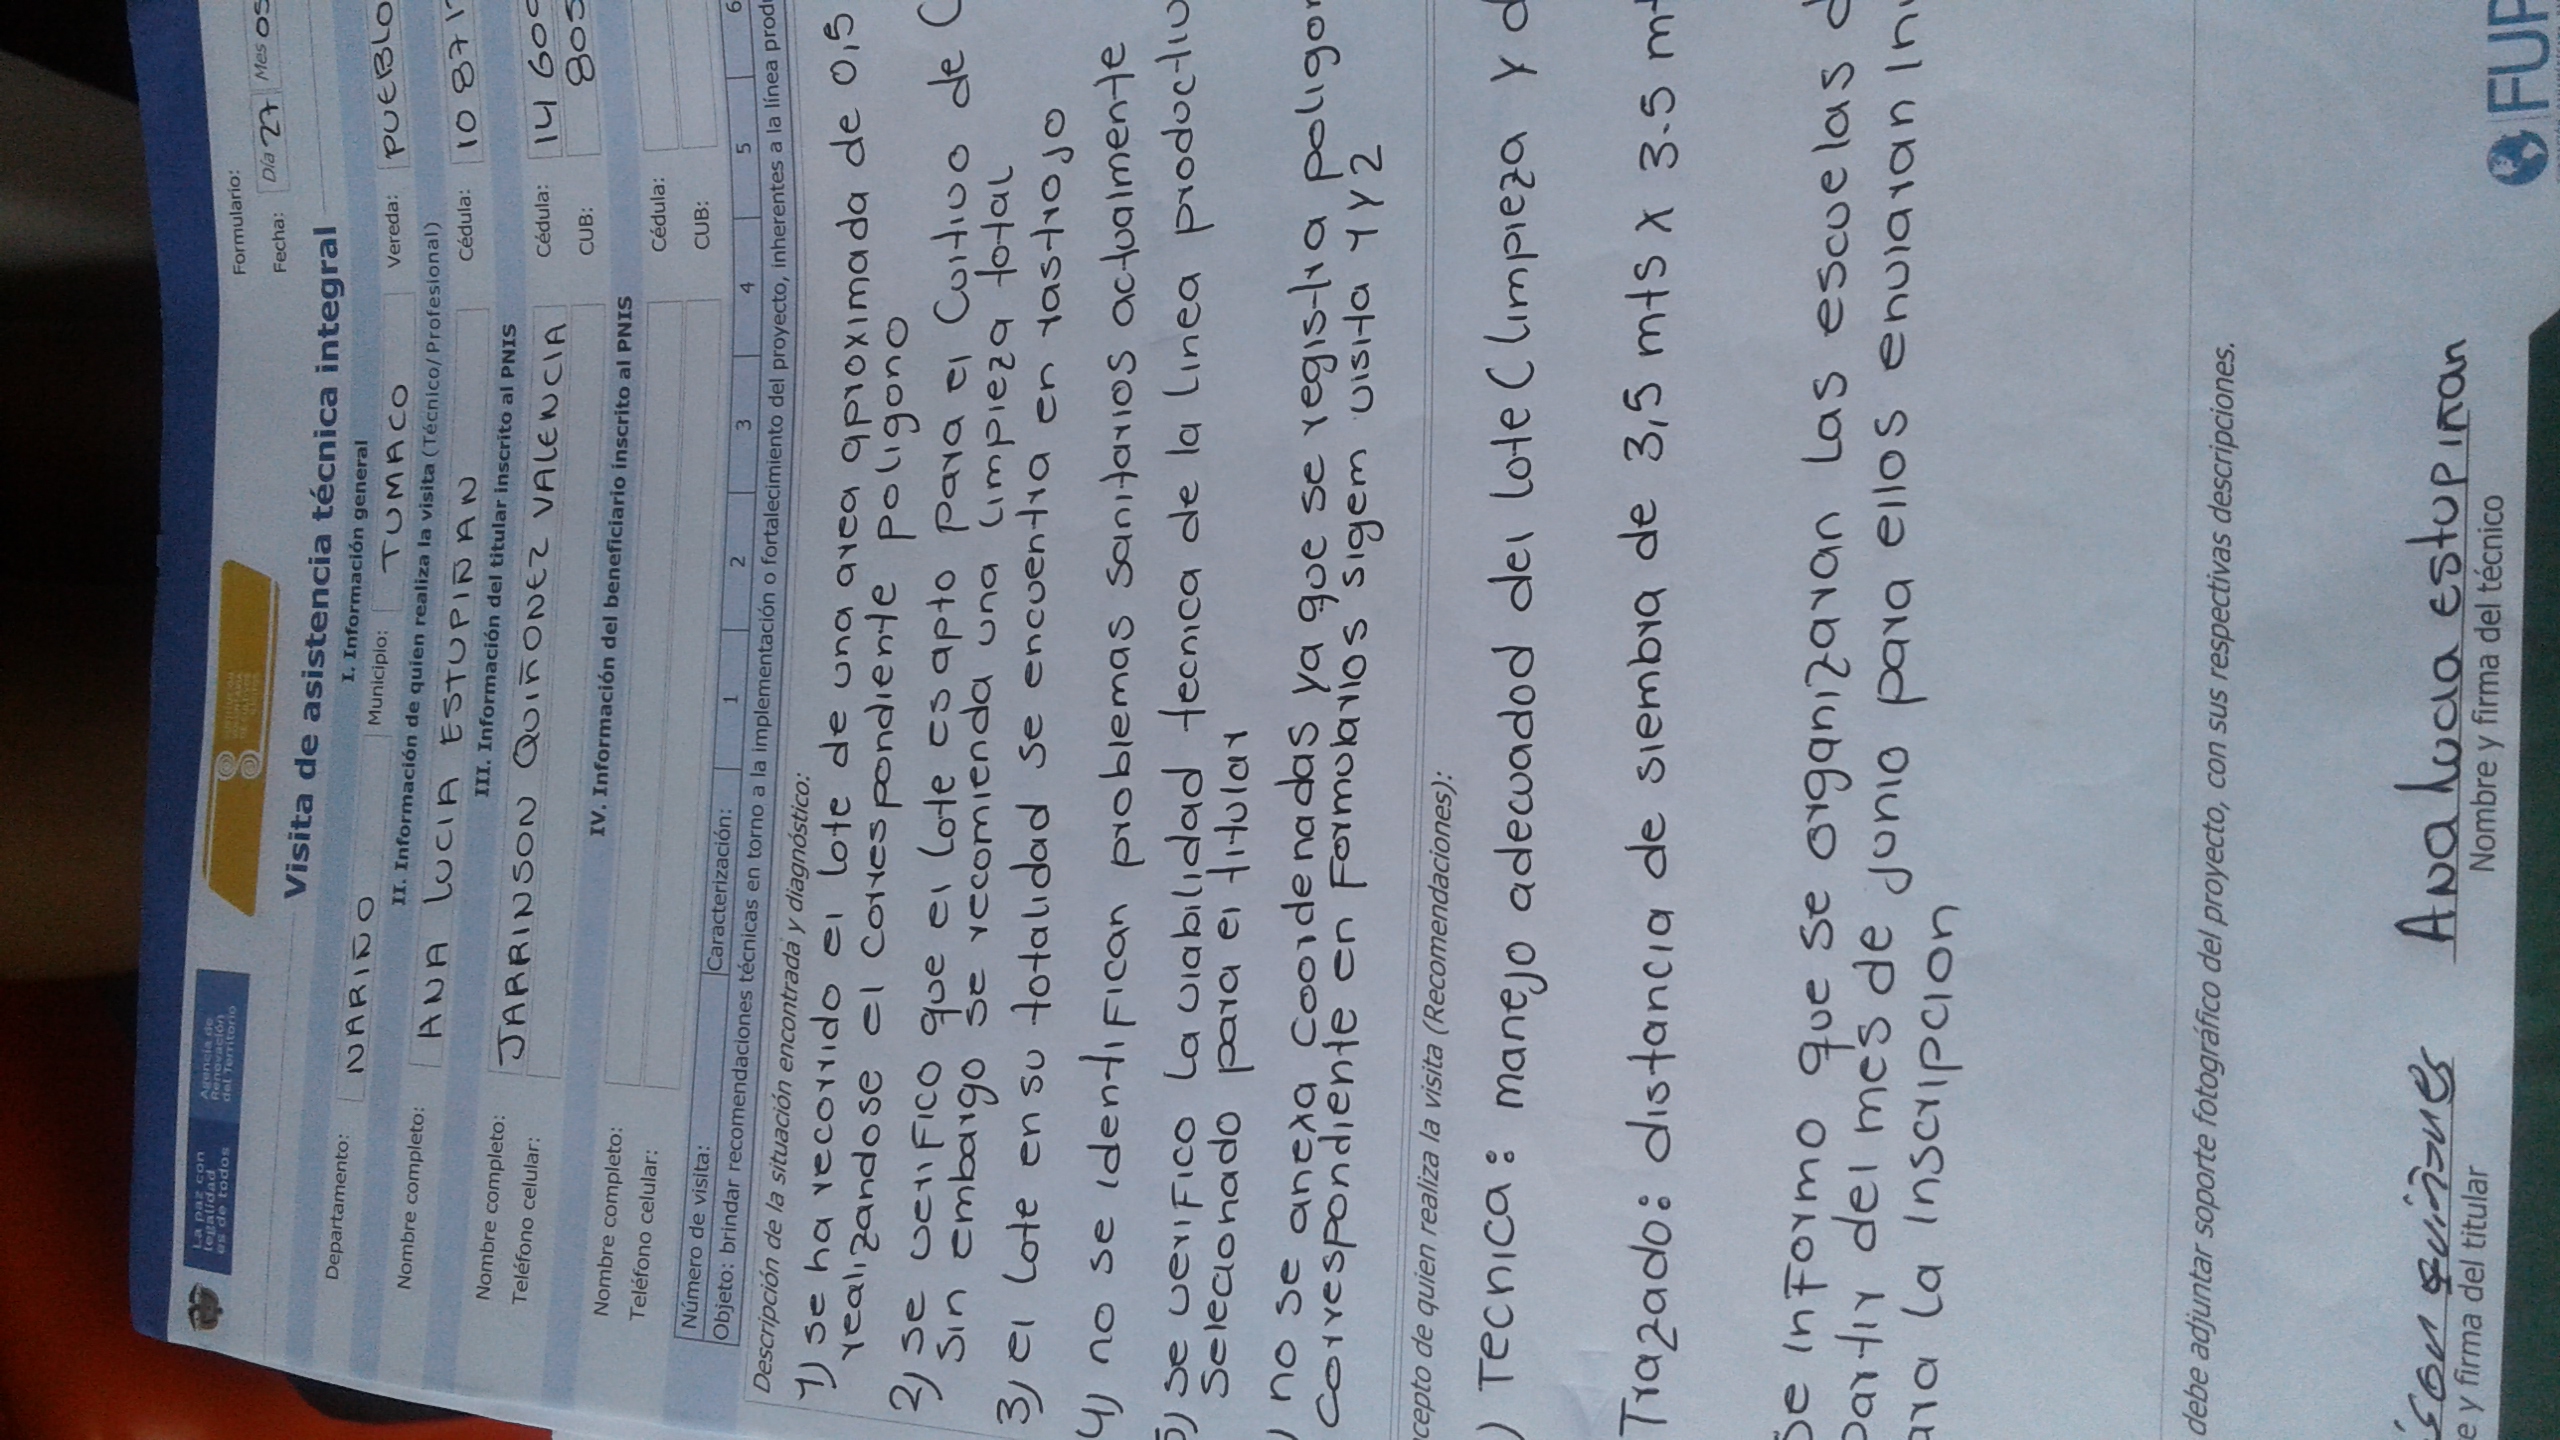 La paz con
legalidad
es de todos
Agencia de
Renovación
del Territorio
Formulario:
Visita de asistencia técnica integral
Fecha: Día 27 Mes 05
I. Información general
Departamento: NARIÑO Municipio: TUMACO Vereda: PUEBLO
II. Información de quien realiza la visita (Técnico/Profesional)
Nombre completo: ANA LUCIA ESTUPIÑAN Cédula: 10871
III. Información del titular inscrito al PNIS
Nombre completo: JARRINSON QUIÑONEZ VALENCIA Cédula: 14600
Teléfono celular: CUB: 805
IV. Información del beneficiario inscrito al PNIS
Nombre completo: Cédula:
Teléfono celular: CUB:
Número de visita: Caracterización: 1 2 3 4 5 6
Objeto: brindar recomendaciones técnicas en torno a la implementación o fortalecimiento del proyecto, inherentes a la línea produ
Descripción de la situación encontrada y diagnóstico:
1) se ha recorrido el lote de una area aproximada de 0,5
realizandose el correspondiente poligono
2) se verifico que el lote es apto para el cultivo de C
sin embargo se recomienda una limpieza total
3) el lote en su totalidad se encuentra en rastrojo
4) no se identifican problemas sanitarios actualmente
5) se verifico la viabilidad tecnica de la linea productiv
selecionado para el titular
) no se anexa coordenadas ya que se registra poligon
correspondiente en formularios sigem visita 1 y 2
cepto de quien realiza la visita (Recomendaciones):
) Tecnica: manejo adecuadod del lote (limpieza y d
Trazado: distancia de siembra de 3,5 mts x 3.5 mt
Se informo que se organizaran las escuelas d
partir del mes de junio para ellos enviaran in
ara la inscripcion
debe adjuntar soporte fotográfico del proyecto, con sus respectivas descripciones.
son quiñones Ana lucia estupiñan
e y firma del titular Nombre y firma del técnico
FUP